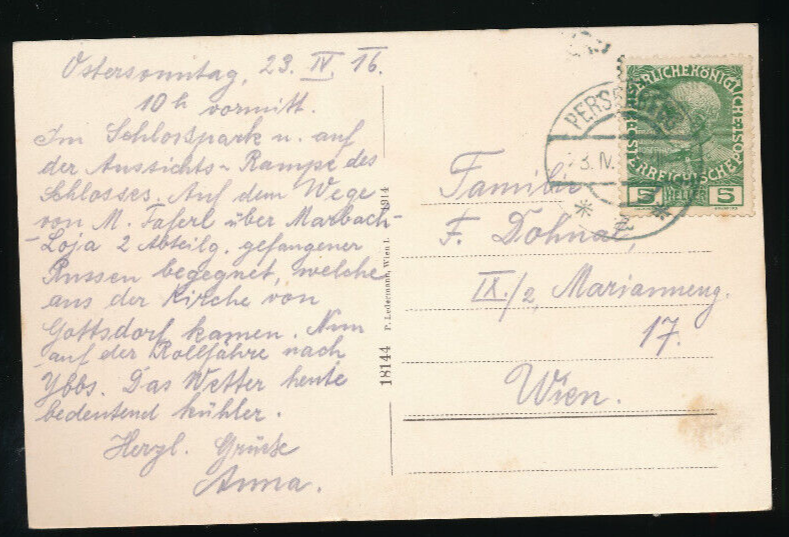 Ostersonntag, 23. IV. 16.
10 h vormitt.
Im Schlosspark u. auf
der Aussichts-Rampe des
Schlosses. Auf dem Wege
von M. Taferl über Marbach-
-Loja 2 Abteilg. gefangener
Russen begegnet, welche
aus der Kirche von
Gottsdorf kamen. Nun
auf der Rollfähre nach
Ybbs. Das Wetter heute
bedeutend kühler.
Herzl. Grüße
Anna.
18144 P. Ledermann, Wien I. 1914
PERSE
23. IV.
KAISERLICHEKÖNIGLICHE
ÖSTERREICHISCHE POST
5 5
Familie
F. Dohnal,
IX./2, Marianneng.
17.
Wien.